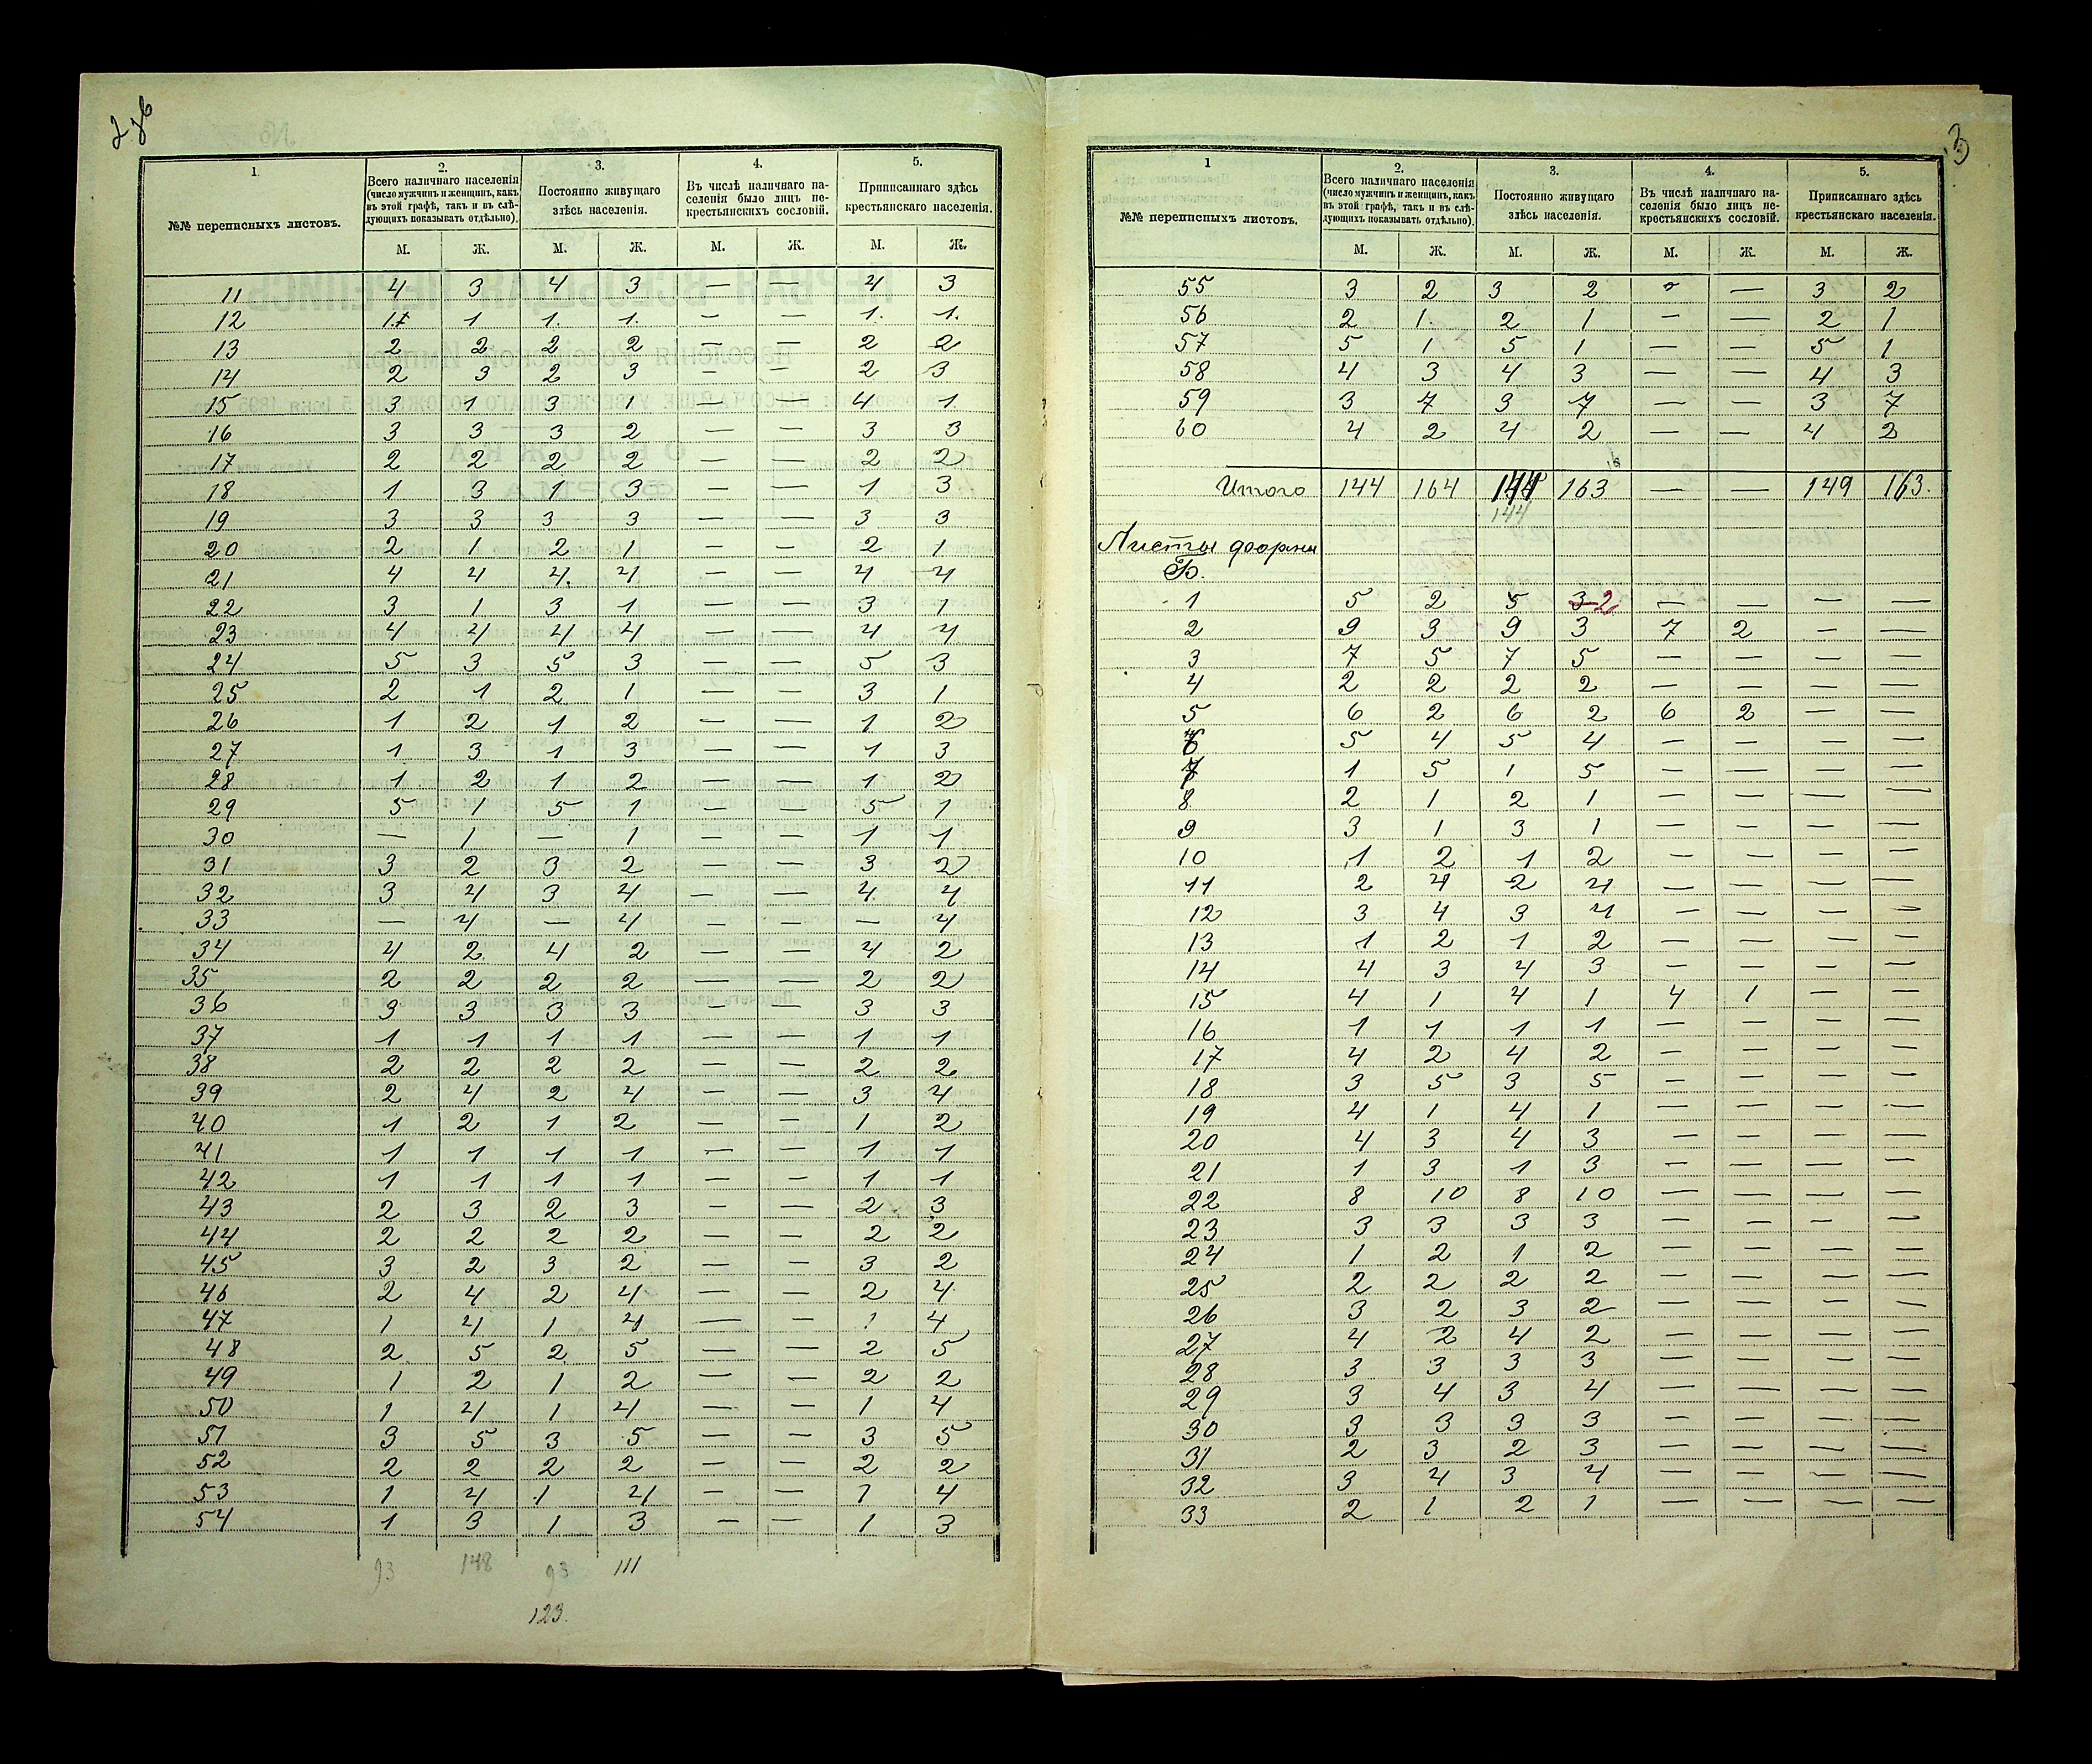 2 об
1.
2.
Всего наличнаго населенія
(число мужчинъ и женщинъ, какъ
въ этой графѣ, такъ и въ слѣ-
дующихъ показывать отдѣльно).
3.
Постоянно живущаго
здѣсь населенія.
4.
Въ числѣ наличнаго на-
селенія было лицъ не-
крестьянскихъ сословій.
5.
Приписаннаго здѣсь
крестьянскаго населенія.
№№ переписныхъ листовъ.
М. Ж. М. Ж. М. Ж. М. Ж.
11 4 3 4 3 — — 4 3
12 1 1 1. 1. — — 1. 1.
13 2 2 2 2 — — 2 2
14 2 3 2 3 — — 2 3
15 3 1 3 1 — — 4 1
16 3 3 3 2 — — 3 3
17 2 2 2 2 — — 2 2
18 1 3 1 3 — — 1 3
19 3 3 3 3 — — 3 3
20 2 1 2 1 — — 2 1
21 4 4 4. 4 — — 4 4
22 3 1 3 1 — — 3 1
23 4 4 4 4 — — 4 4
24 5 3 5 3 — — 5 3
25 2 1 2 1 — — 3 1
26 1 2 1 2 — — 1 2
27 1 3 1 3 — — 1 3
28 1 2 1 2 — — 1 2
29 5 1 5 1 — — 5 1
30 — 1 — 1 — — 1 1
31 3 2 3 2 — — 3 2
32 3 4 3 4 — — 4 4
33 — 4 — 4 — — — 4
34 4 2 4 2 — — 4 2
35 2 2 2 2 — — 2 2
36 3 3 3 3 — — 3 3
37 1 1 1 1 — — 1 1
38 2 2 2 2 — — 2 2
39 2 4 2 4 — — 3 4
40 1 2 1 2 — — 1 2
41 1 1 1 1 — — 1 1
42 1 1 1 1 — — 1 1
43 2 3 2 3 — — 2 3
44 2 2 2 2 — — 2 2
45 3 2 3 2 — — 3 2
46 2 4 2 4 — — 2 4
47 1 4 1 4 — — 1 4
48 2 5 2 5 — — 2 5
49 1 2 1 2 — — 2 2
50 1 4 1 4 — — 1 4
51 3 5 3 5 — — 3 5
52 2 2 2 2 — — 2 2
53 1 4 1 4 — — 1 4
54 1 3 1 3 — — 1 3
93 148 93 111
123.
3
1
2.
Всего наличнаго населенія
(число мужчинъ и женщинъ, какъ
въ этой графѣ, такъ и въ слѣ-
дующихъ показывать отдѣльно).
3.
Постоянно живущаго
здѣсь населенія.
4.
Въ числѣ наличнаго на-
селенія было лицъ не-
крестьянскихъ сословій.
5.
Приписаннаго здѣсь
крестьянскаго населенія.
№№ переписныхъ листовъ.
М. Ж. М. Ж. М. Ж. М. Ж.
55 3 2 3 2 — — 3 2
56 2 1. 2 1 — — 2 1
57 5 1 5 1 — — 5 1
58 4 3 4 3 — — 4 3
59 3 7 3 7 — — 3 7
60 4 2 4 2 — — 4 2
Итого 144 164 144 163 — — 149 163.
144
Листы формы
Б.
1 5 2 5 3 2 — — — —
2 9 3 9 3 7 2 — —
3 7 5 7 5 — — — —
4 2 2 2 2 — — — —
5 6 2 6 2 6 2 — —
6 5 4 5 4 — — — —
7 1 5 1 5 — — — —
8 2 1 2 1 — — — —
9 3 1 3 1 — — — —
10 1 2 1 2 — — — —
11 2 4 2 4 — — — —
12 3 4 3 4 — — — —
13 1 2 1 2 — — — —
14 4 3 4 3 — — — —
15 4 1 4 1 4 1 — —
16 1 1 1 1 — — — —
17 4 2 4 2 — — — —
18 3 5 3 5 — — — —
19 4 1 4 1 — — — —
20 4 3 4 3 — — — —
21 1 3 1 3 — — — —
22 8 10 8 10 — — — —
23 3 3 3 3 — — — —
24 1 2 1 2 — — — —
25 2 2 2 2 — — — —
26 3 2 3 2 — — — —
27 4 2 4 2 — — — —
28 3 3 3 3 — — — —
29 3 4 3 4 — — — —
30 3 3 3 3 — — — —
31 2 3 2 3 — — — —
32 3 4 3 4 — — — —
33 2 1 2 1 — — — —